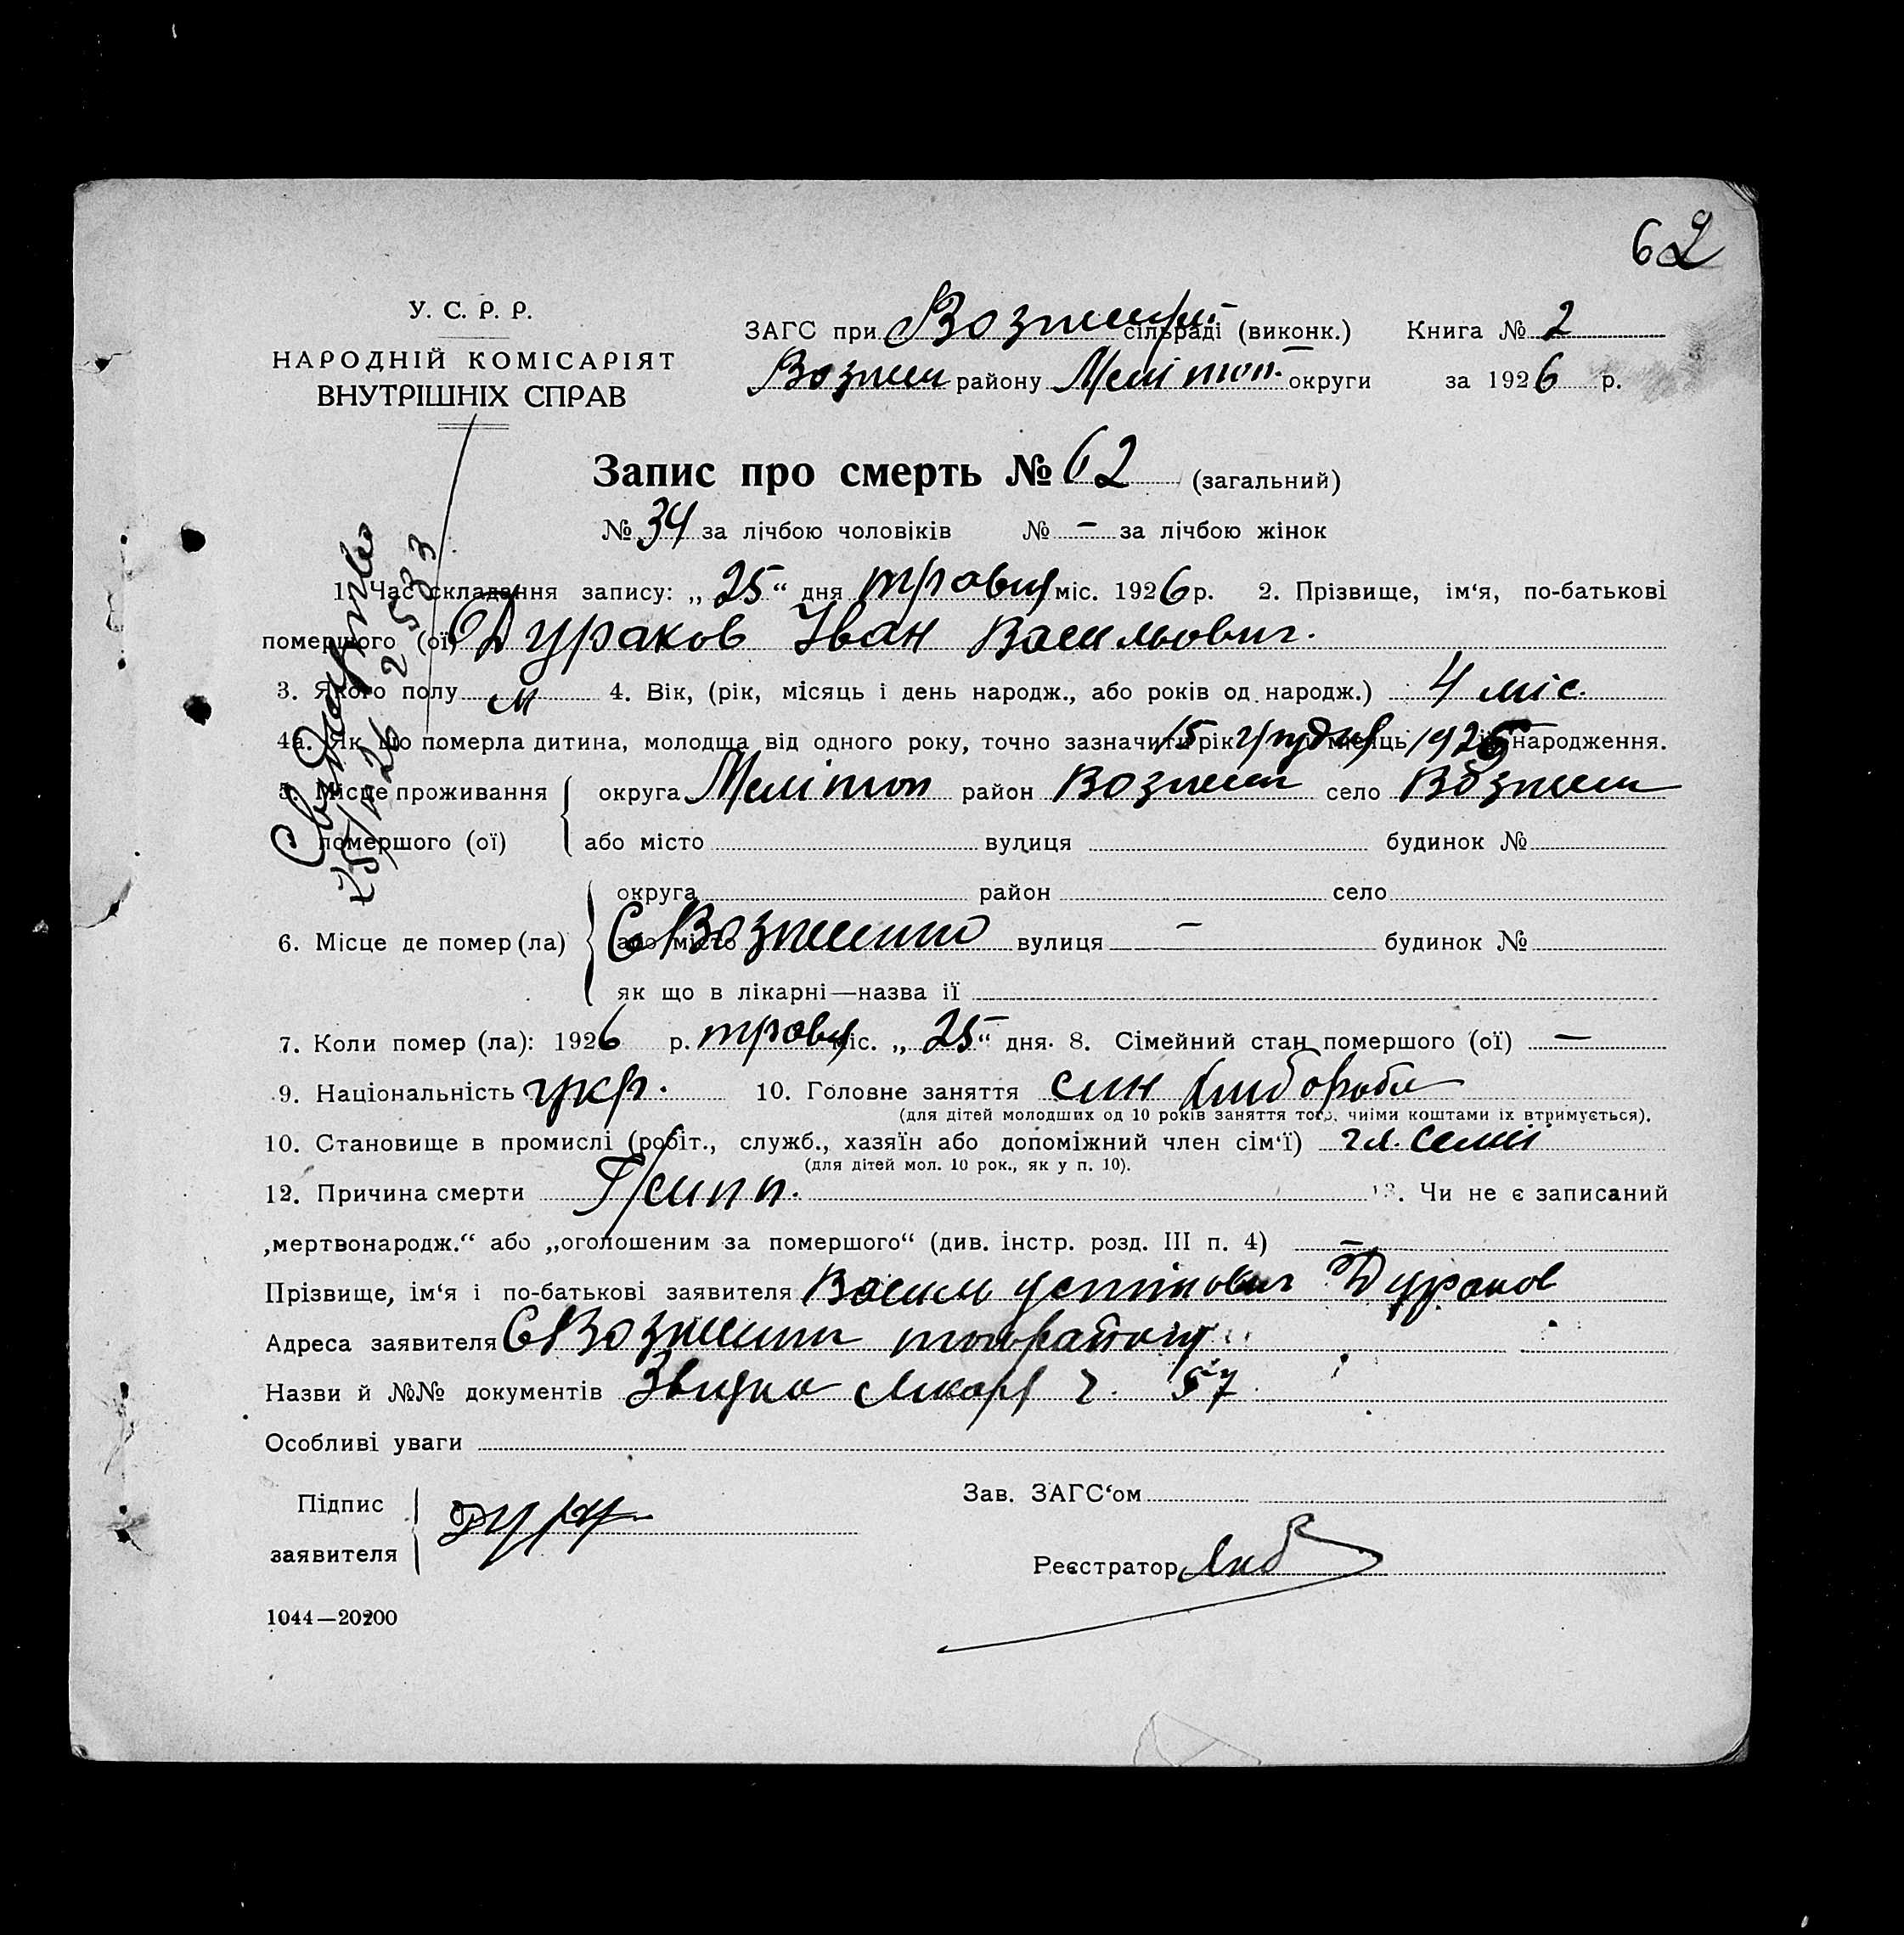 62
У. С. Р. Р.
НАРОДНІЙ КОМІСАРІЯТ
ВНУТРІШНІХ СПРАВ
ЗАГС при сільраді (виконк.) Книга № 2
району Меліт оп. округи за 1926 р.
Запис про смерть № 62 (загальний)
№ 34 за лічбою чоловіків № – за лічбою жінок
1. Час складання запису: „ 25 “ дня травня міс. 1926 р. 2. Прізвище, ім‘я, по-батькові
помершого (ої) Дураков Іван Васильович.
3. Якого полу м 4. Вік, (рік, місяць і день народж., або років од народж.) 4 міс.
4а. Як що померла дитина, молодща від одного року, точно зазначити рік 15 грудня місяць 1925 народження.
5. Місце проживання округа Мелітоп район Вознесен село Вознесен
помершого (ої) або місто вулиця будинок №
округа район село
6. Місце де помер (ла) або місто С вулиця – будинок №
як що в лікарні—назва її
7. Коли помер (ла): 1926 р. травня міс. „ 25 “ дня. 8. Сімейний стан помершого (ої) —
9. Національність укр. 10. Головне заняття син хлібороба
(для дітей молодших од 10 років заняття того, чиїми коштами їх втримується).
10. Становище в промислі (робіт., служб., хазяїн або допоміжний член сім‘ї) гл. семії
(для дітей мол. 10 рок., як у п. 10).
12. Причина смерти Грипп. 13. Чи не є записаний
„мертвонародж.“ або „оголошеним за помершого“ (див. інстр. розд. III п. 4) –
Прізвище, ім‘я і по-батькові заявителя Василь Устінович Дураков
Адреса заявителя С
Назви й №№ документів лікаря ч. 57
Особливі уваги
Підпис
заявителя
Зав. ЗАГС‘ом
Реєстратор
1044—20200
Свідоцтво
25/V 26 2533